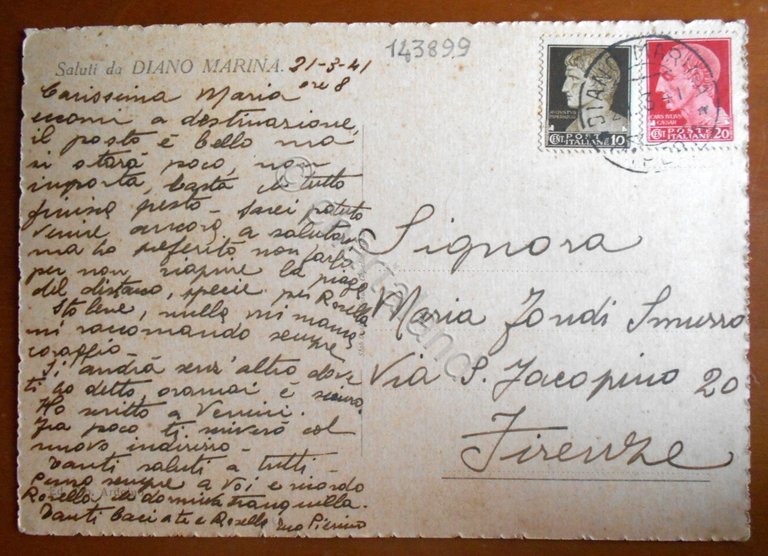 143899
Saluti da DIANO MARINA. 21-3-41
ore 8
Carissima Maria
eccomi a destinazione,
il posto è bello ma
si starà poco, non
importa, basta che tutto
finisca presto - Sarei potuto
venire ancora a salutarvi
ma ho preferito non farlo
per non riaprire la piaga
del distacco, specie per Rosella
Sto bene, nulla mi manca
mi raccomando sempre
coraggio -
Si andrà senz'altro dove
ti ho detto, oramai è sicuro.
Ho scritto a
Fra poco ti scriverò col
nuovo indirizzo -
Tanti saluti a tutti -
Penso sempre a voi e
Rosella che dormiva tranquilla.
Tanti baci a te e Rosella tuo Pierino
POSTE ITALIANE
CENT. 10
POSTE ITALIANE
CENT. 20
DIANO MARINA
Signora
Maria Fondi Smurro
Via S. Jacopino 20
Firenze